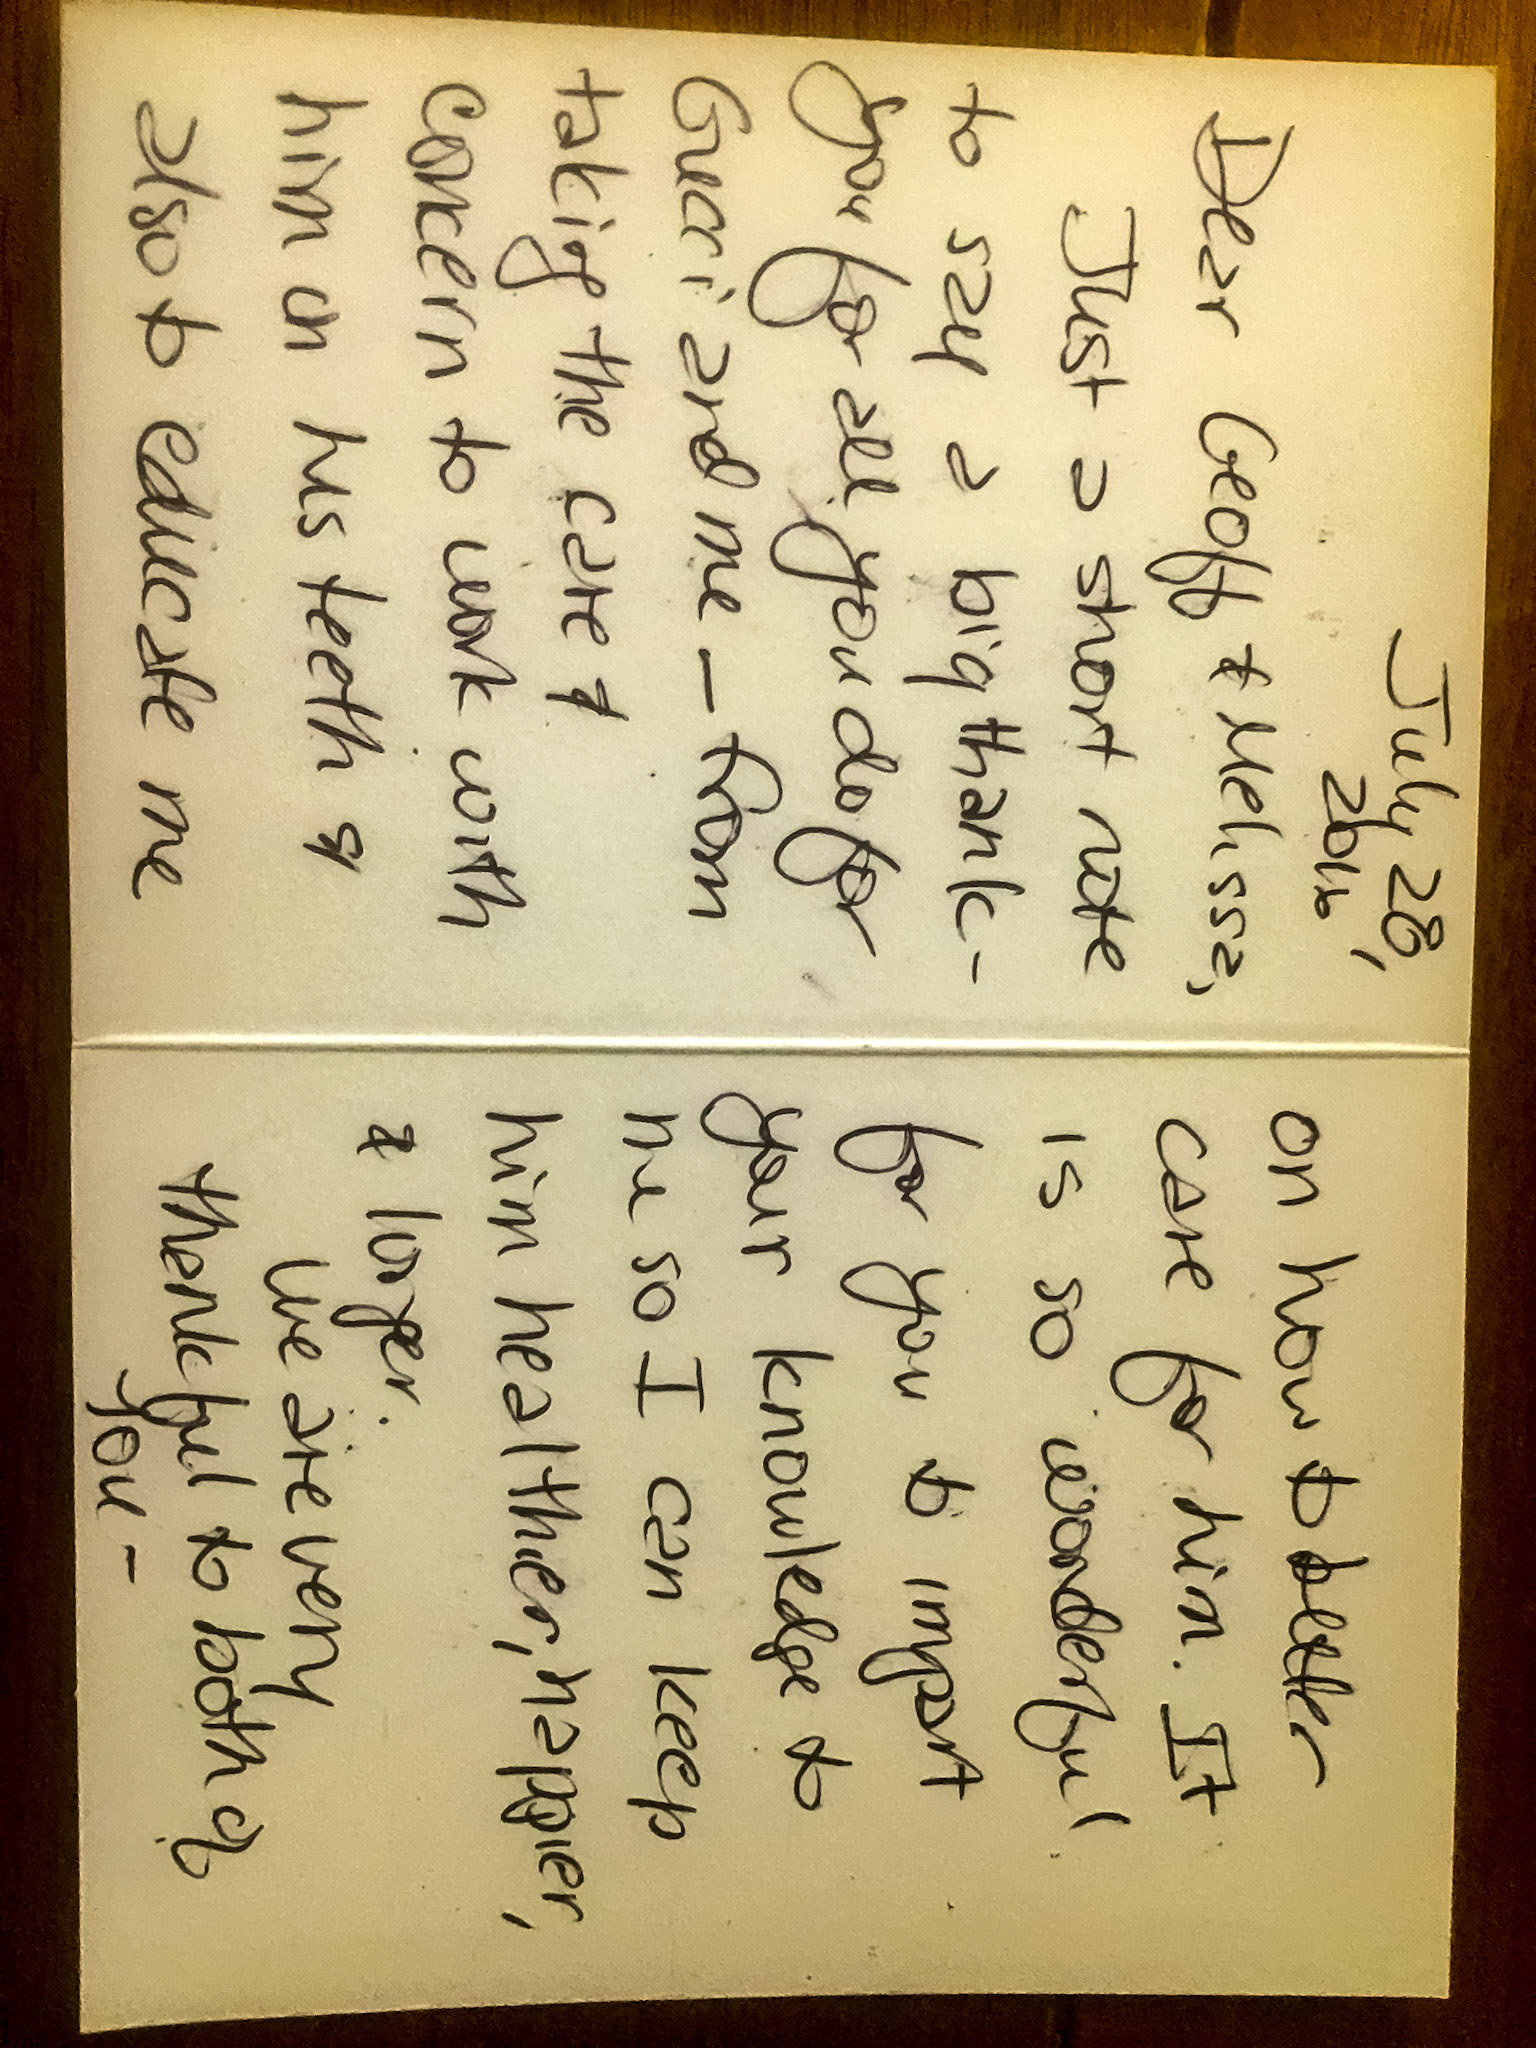 July 28,
2016
Dear Geoff & Melissa,
Just a short note
to say a big thank-
you for all you do for
Gucci and me - from
taking the care &
concern to work with
him on his teeth &
also to educate me
on how to better
care for him. It
is so wonderful
for you to impart
your knowledge to
me so I can keep
him healthier, happier,
& longer.
We are very
thankful to both of
you -